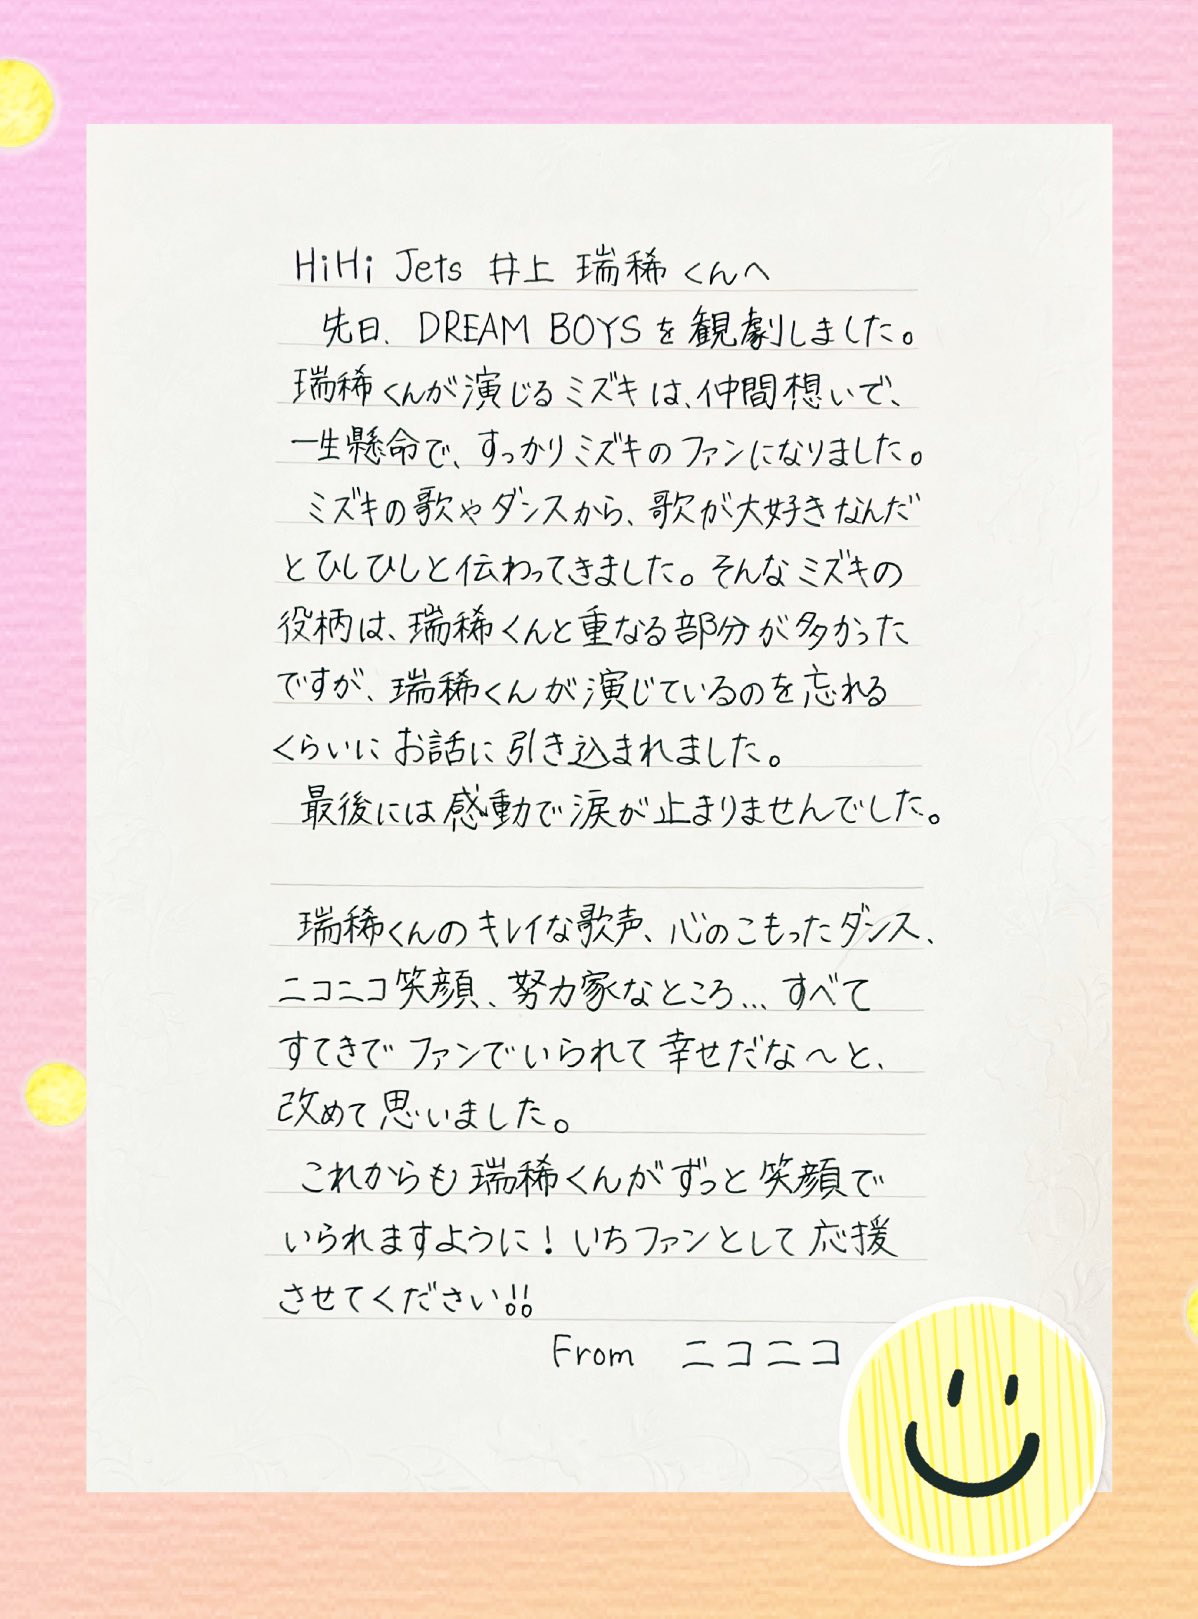 HiHi Jets 井上 瑞稀くんへ
先日、DREAM BOYSを観劇しました。
瑞稀くんが演じるミズキは、仲間想いで、
一生懸命で、すっかりミズキのファンになりました。
ミズキの歌やダンスから、歌が大好きなんだ
とひしひしと伝わってきました。そんなミズキの
役柄は、瑞稀くんと重なる部分が多かった
ですが、瑞稀くんが演じているのを忘れる
くらいにお話に引き込まれました。
最後には感動で涙が止まりませんでした。
瑞稀くんのキレイな歌声、心のこもったダンス、
ニコニコ笑顔、努力家なところ...すべて
すてきでファンでいられて幸せだな〜と、
改めて思いました。
これからも瑞稀くんがずっと笑顔で
いられますように!いちファンとして応援
させてください!!
From ニコニコ